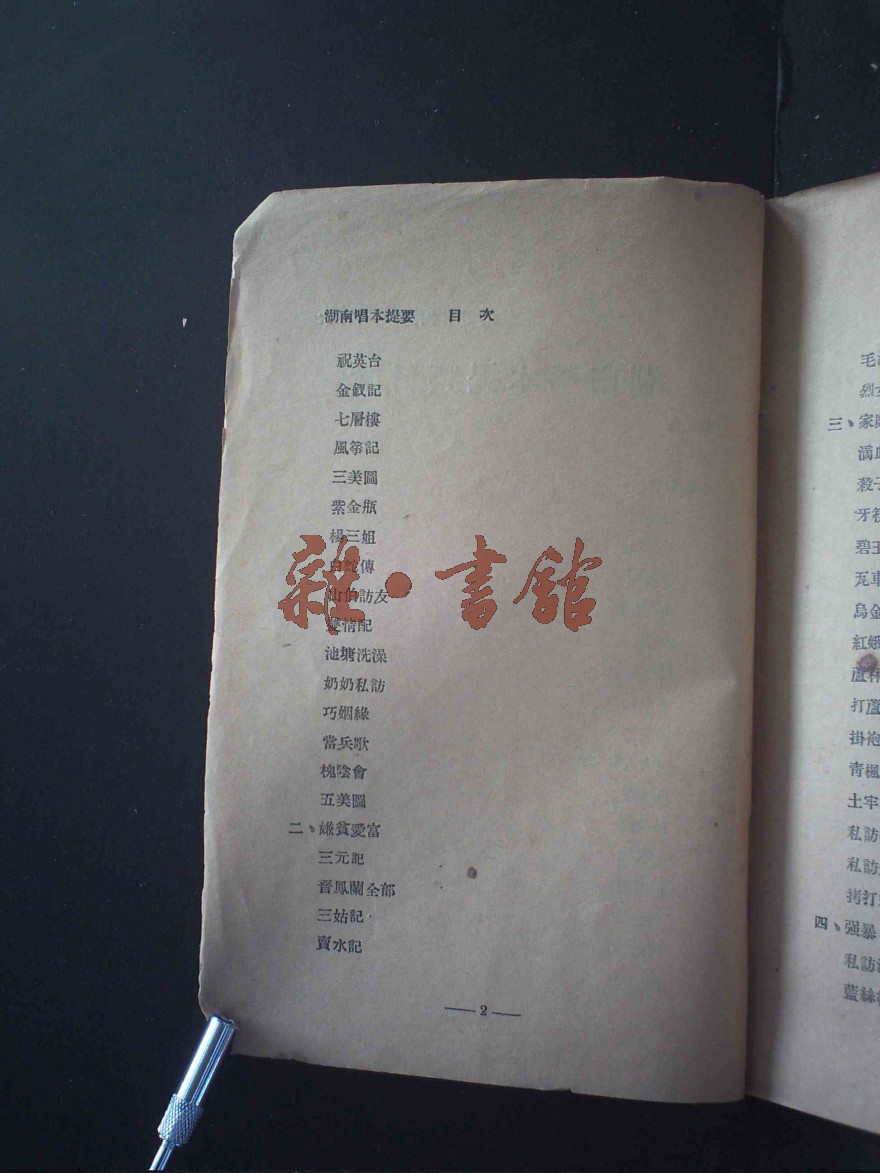 湖南唱本提要 目次
祝英台
金釵記
七層樓
風箏記
三美圖
紫金瓶
楊三姐
白蛇傳
山伯訪友
雙情配
池塘洗澡
奶奶私訪
巧姻緣
當兵歌
槐陰會
五美圖
二、嫌貧愛富
三元記
晋鳳蘭全部
三姑記
賣水記
—2—
雜·書館
毛
烈
三、家庭
滿
殺子
牙
碧玉
瓦車
烏金
紅娥
蘆林
打蘆
掛袍
青楓
土牢
私訪
私訪
拷打
四、强暴
私訪
藍絲